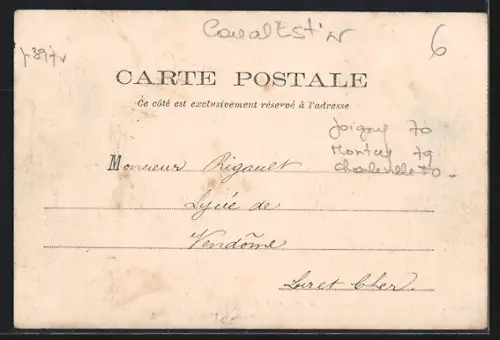 Canal Est
6
CARTE POSTALE
Ce côté est exclusivement réservé à l'adresse
Joigny 70
79
Charleville 80 -
Monsieur Rigault
Lycée de
Vendôme
Loir et Cher.